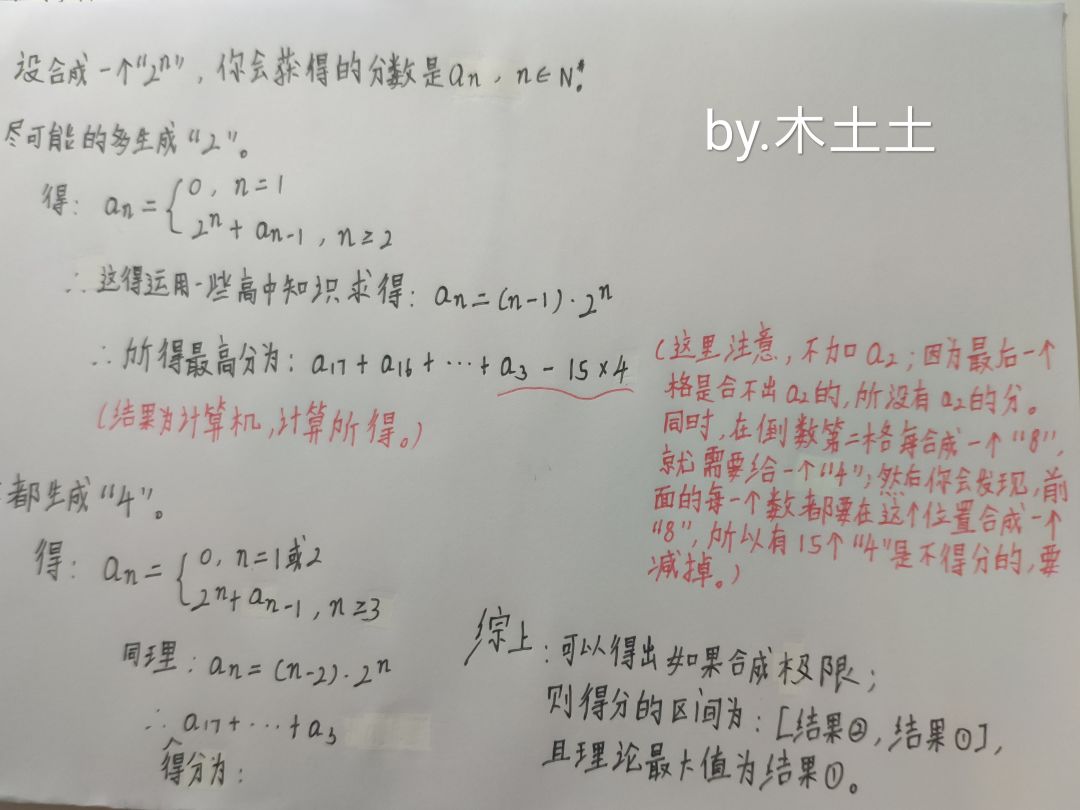 设合成一个“2ⁿ”，你会获得的分数是aₙ，n∈N*。
by.木土土
尽可能的多生成“2”。
得：aₙ={0，n=1
2ⁿ+aₙ₋₁，n≥2
∴这得运用一些高中知识求得：aₙ=(n-1)·2ⁿ
∴所得最高分为：a₁₇+a₁₆+…+a₃-15×4
(结果为计算机,计算所得。)
(这里注意，不加a₂；因为最后一个
格是合不出a₂的,所没有a₂的分。
同时,在倒数第二格每合成一个“8”,
就需要给一个“4”；然后你会发现,前
面的每一个数都要在这个位置合成一个
“8”,所以有15个“4”是不得分的,要
减掉。)
都生成“4”。
得：aₙ={0，n=1或2
2ⁿ+aₙ₋₁，n≥3
同理：aₙ=(n-2)·2ⁿ
∴a₁₇+…+a₃
得分为：
综上：可以得出如果合成极限；
则得分的区间为：[结果②,结果①],
且理论最大值为结果①。